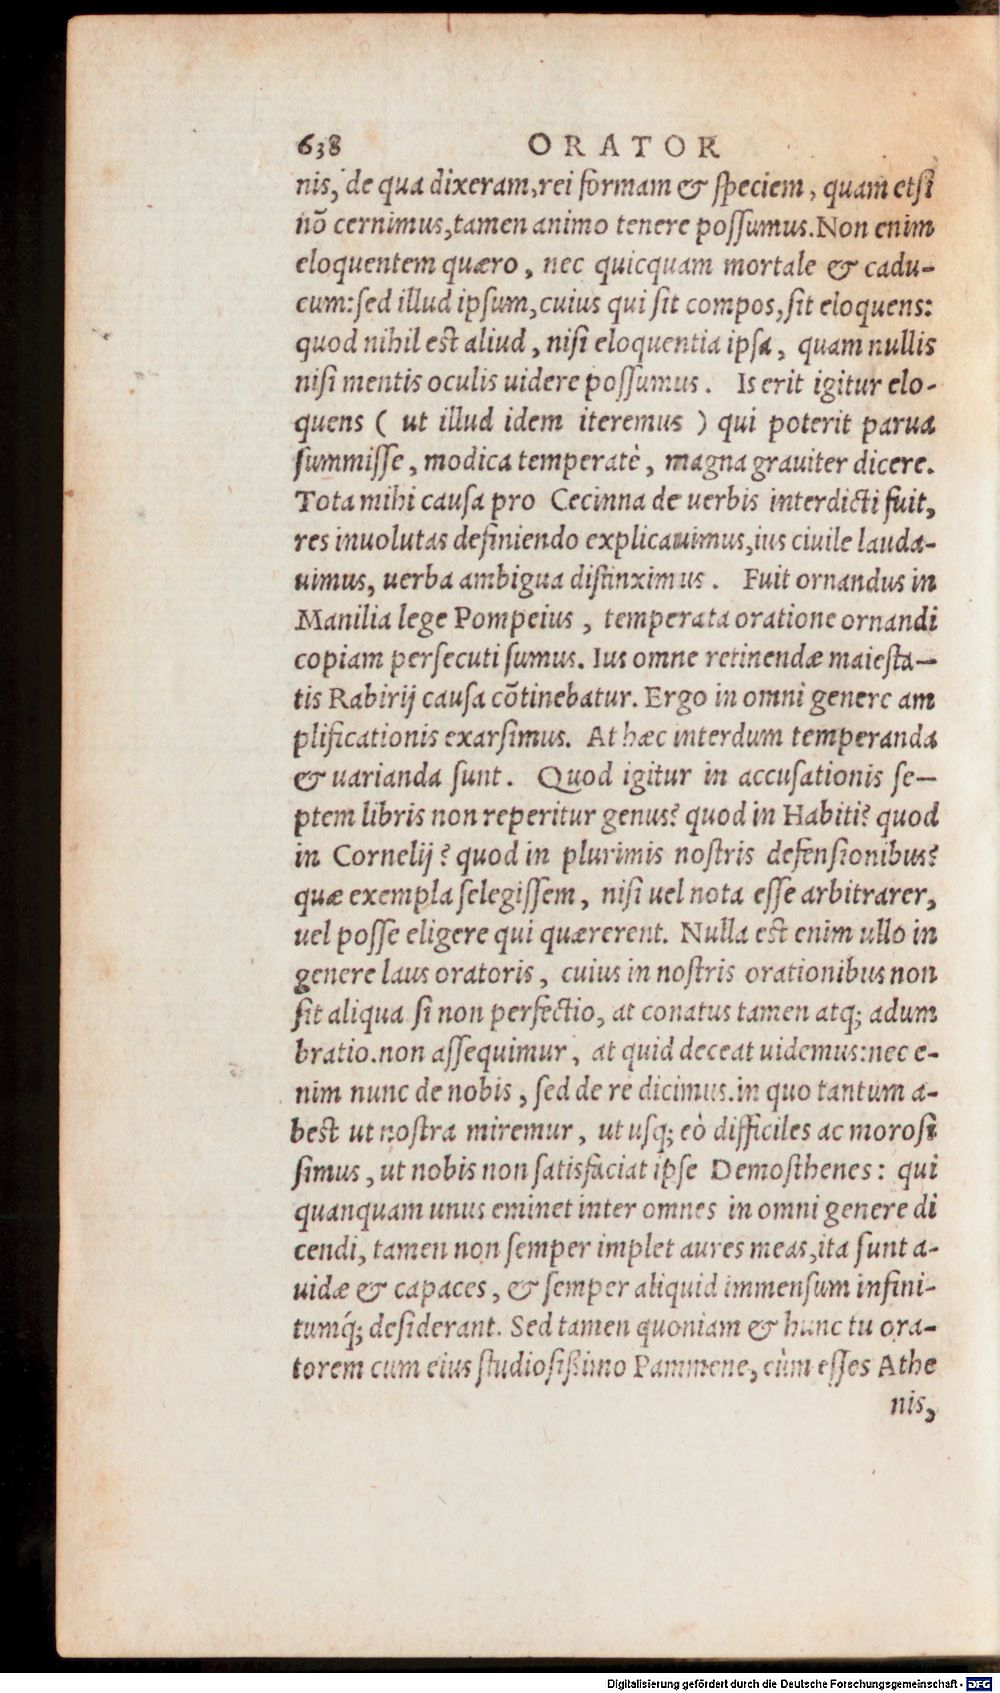 638 ORATOR
nis, de qua dixeram, rei formam & speciem, quam etsi
nō cernimus, tamen animo tenere possumus. Non enim
eloquentem quæro, nec quicquam mortale & cadu-
cum: sed illud ipsum, cuius qui sit compos, sit eloquens:
quod nihil est aliud, nisi eloquentia ipsa, quam nullis
nisi mentis oculis uidere possumus. Is erit igitur elo-
quens ( ut illud idem iteremus ) qui poterit parua
summisse, modica temperatè, magna grauiter dicere.
Tota mihi causa pro Cecinna de uerbis interdicti fuit,
res inuolutas definiendo explicauimus, ius ciuile lauda-
uimus, uerba ambigua distinximus. Fuit ornandus in
Manilia lege Pompeius, temperata oratione ornandi
copiam persecuti sumus. Ius omne retinendæ maiesta-
tis Rabirij causa cōtinebatur. Ergo in omni genere am
plificationis exarsimus. At hæc interdum temperanda
& uarianda sunt. Quod igitur in accusationis se-
ptem libris non reperitur genus? quod in Habiti? quod
in Cornelij? quod in plurimis nostris defensionibus?
quæ exempla selegissem, nisi uel nota esse arbitrarer,
uel posse eligere qui quærerent. Nulla est enim ullo in
genere laus oratoris, cuius in nostris orationibus non
sit aliqua si non perfectio, at conatus tamen atq; adum
bratio. non assequimur, at quid deceat uidemus: nec e-
nim nunc de nobis, sed de re dicimus. in quo tantum a-
best ut nostra miremur, ut usq; eò difficiles ac morosi
simus, ut nobis non satisfaciat ipse Demosthenes: qui
quanquam unus eminet inter omnes in omni genere di
cendi, tamen non semper implet aures meas, ita sunt a-
uidæ & capaces, & semper aliquid immensum infini-
tumq́; desiderant. Sed tamen quoniam & hunc tu ora-
torem cum eius studiosißimo Pammene, cùm esses Athe
nis,
Digitalisierung gefördert durch die Deutsche Forschungsgemeinschaft - DFG